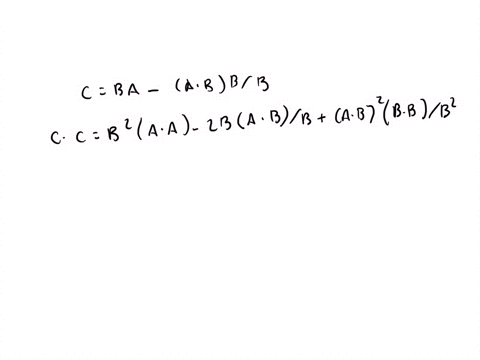 C = BA - (A·B)B/B
C·C = B²(A·A) - 2B(A·B)/B + (A·B)²(B·B)/B²